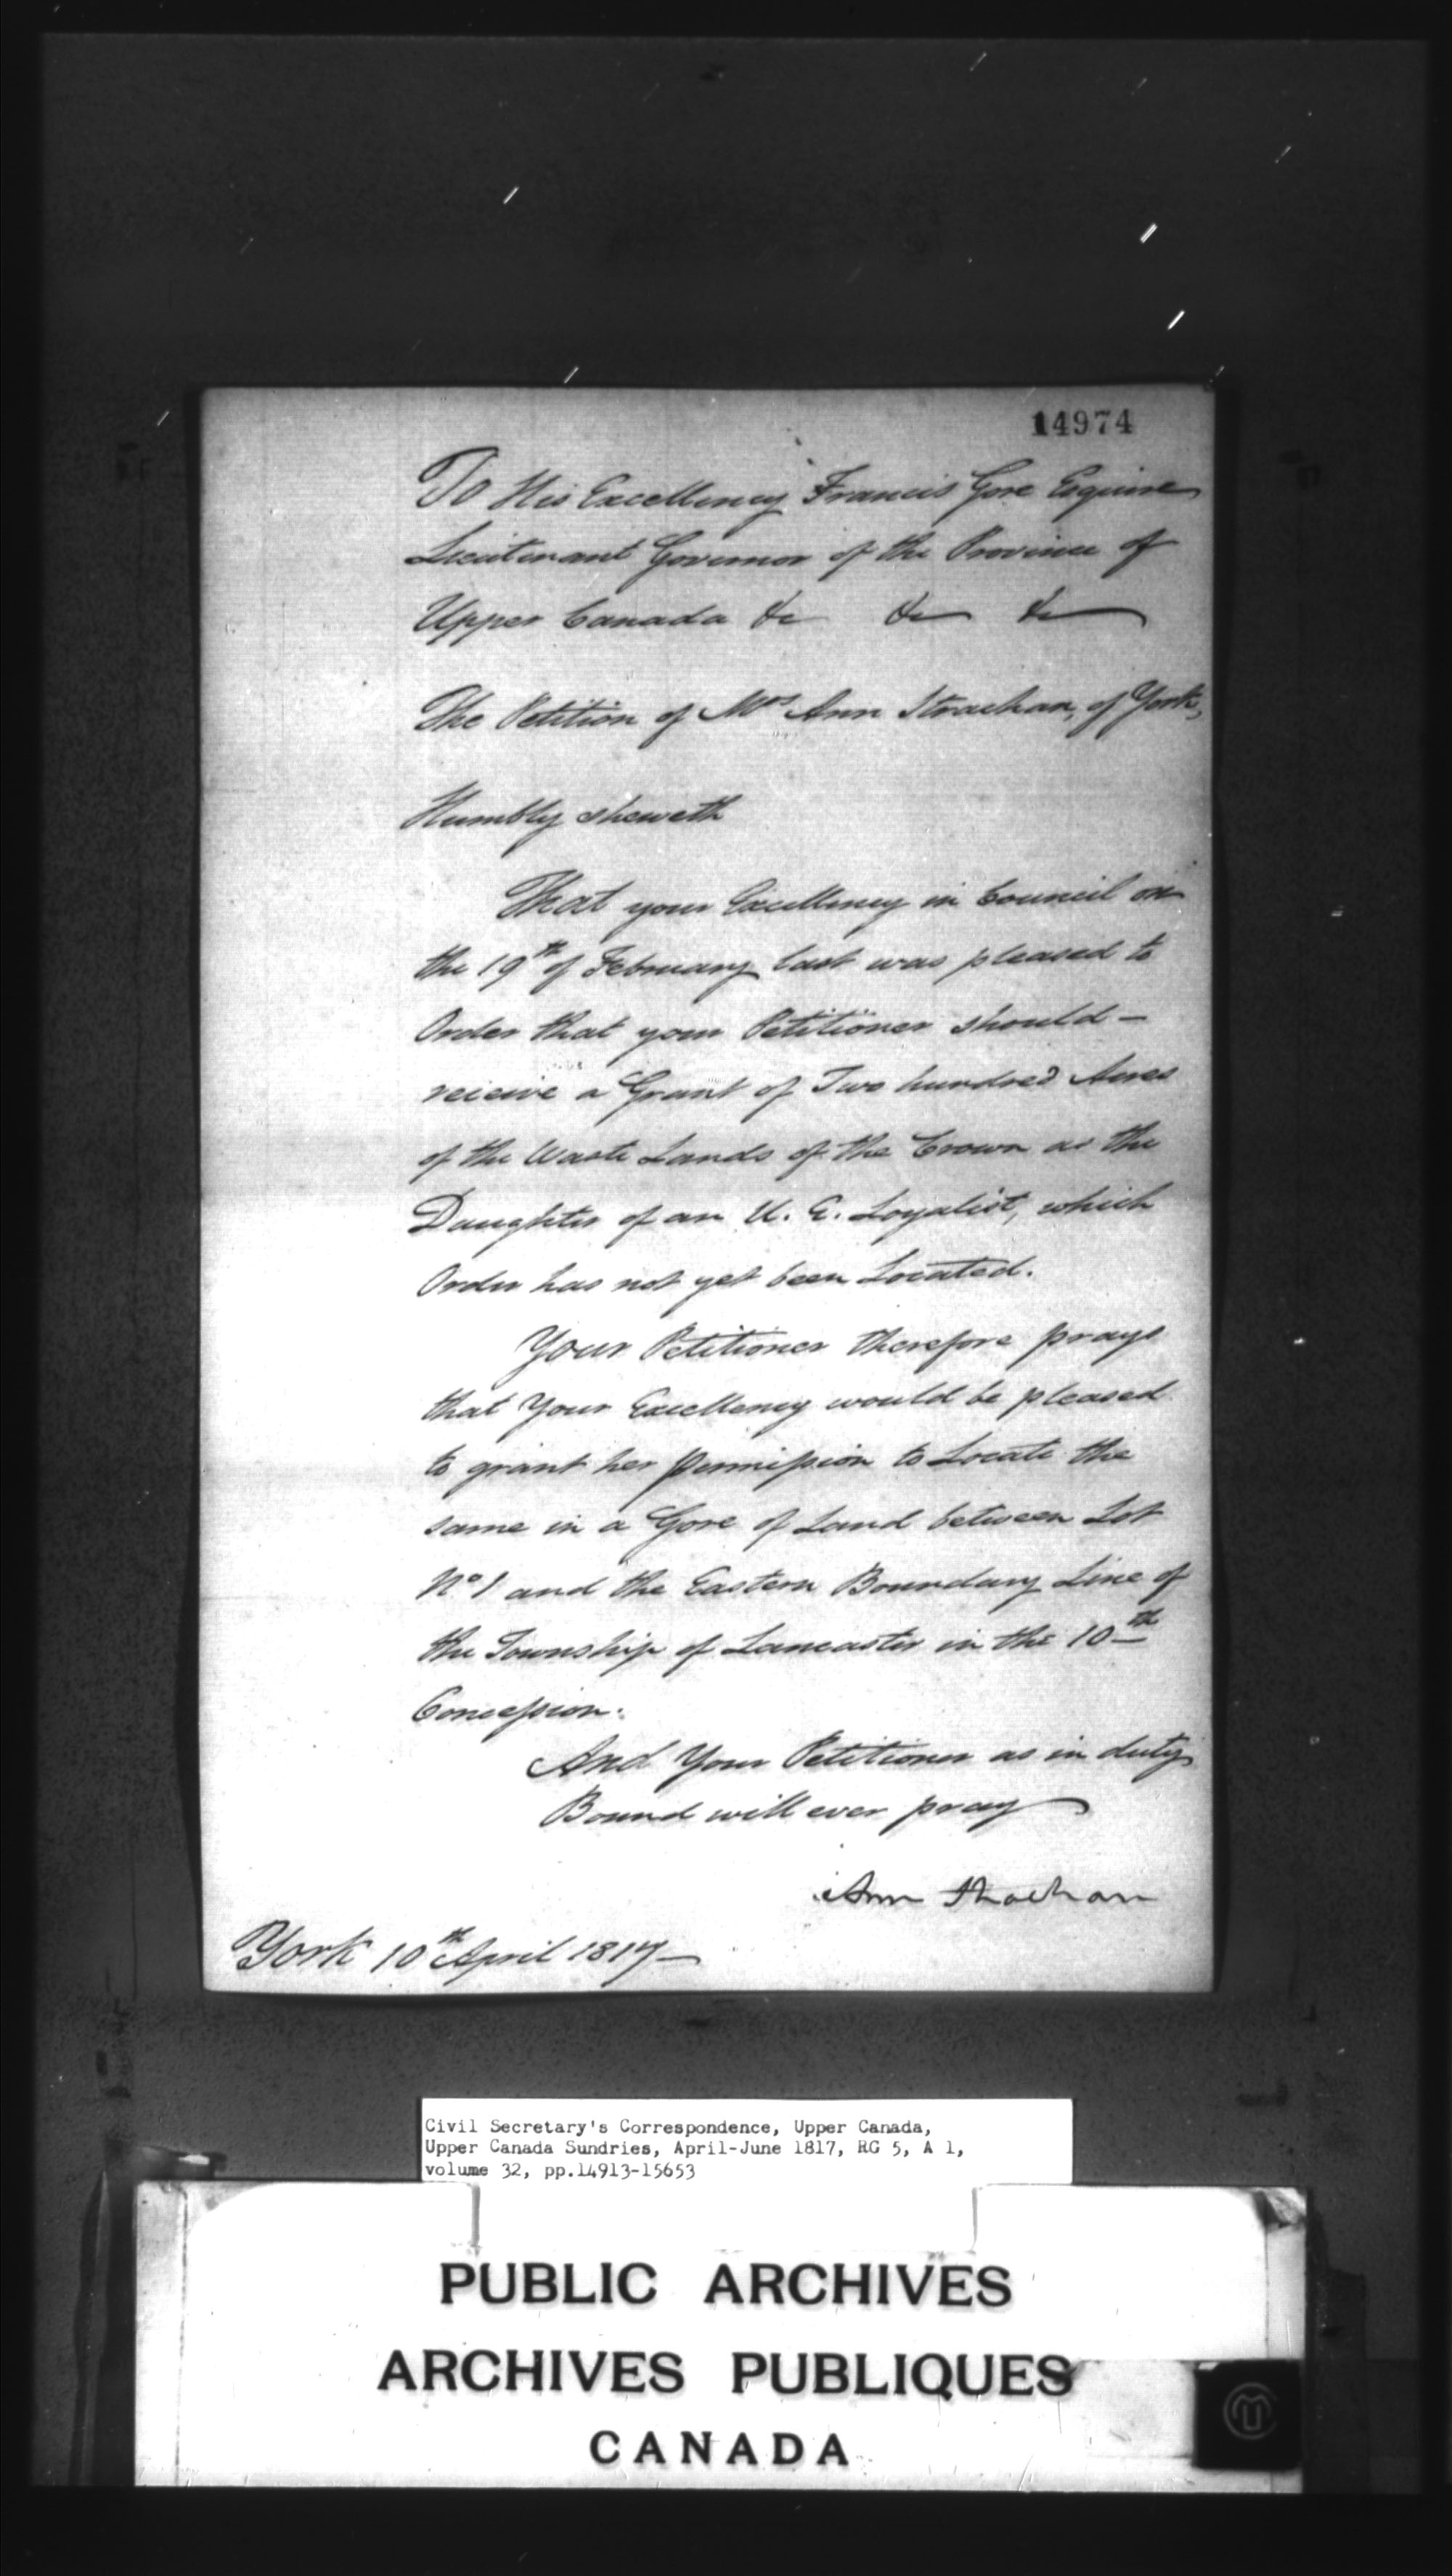 14974
To His Excellency Francis Gore Esquire
Lieutenant Governor of the Province of
Upper Canada &c &c &c
The Petition of Mrs Ann Strachan, of York,
Humbly sheweth
That your Excellency in Council on
the 19th of February last was pleased to
Order that your Petitioner should —
receive a Grant of Two hundred Acres
of the Waste Lands of the Crown as the
Daughter of an U. E. Loyalist, which
Order has not yet been Located.
Your Petitioner therefore prays
that Your Excellency would be pleased
to grant her permission to Locate the
same in a Gore of Land between Lot
No. 1 and the Eastern Boundary Line of
the Township of Lancaster in the 10th
Concession.
And Your Petitioner as in duty
Bound will ever pray
Ann Strachan
York 10th April 1817—
Civil Secretary's Correspondence, Upper Canada,
Upper Canada Sundries, April-June 1817, RG 5, A 1,
volume 32, pp.14913-15653
PUBLIC ARCHIVES
ARCHIVES PUBLIQUES
CANADA